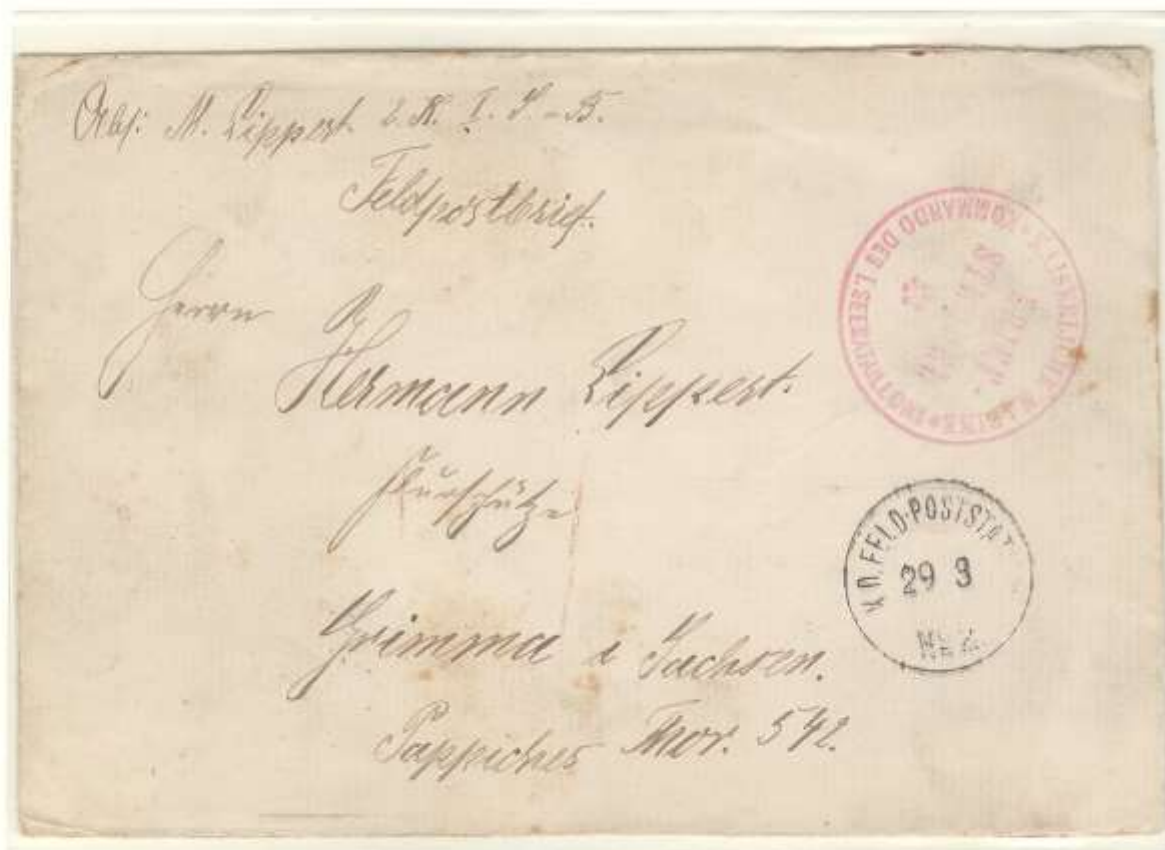 Abs: M. Lippert 2. K. I. S-B.
Feldpostbrief.
Herrn
Hermann Lippert.
Flurschütze
Grimma i Sachsen.
Pappiches Thor. 542.
KAISERLICHE MARINE
KOMMANDO DES I. SEEBATAILLONS
K.D. FELD-POSTSTAT
29 3
No 2.